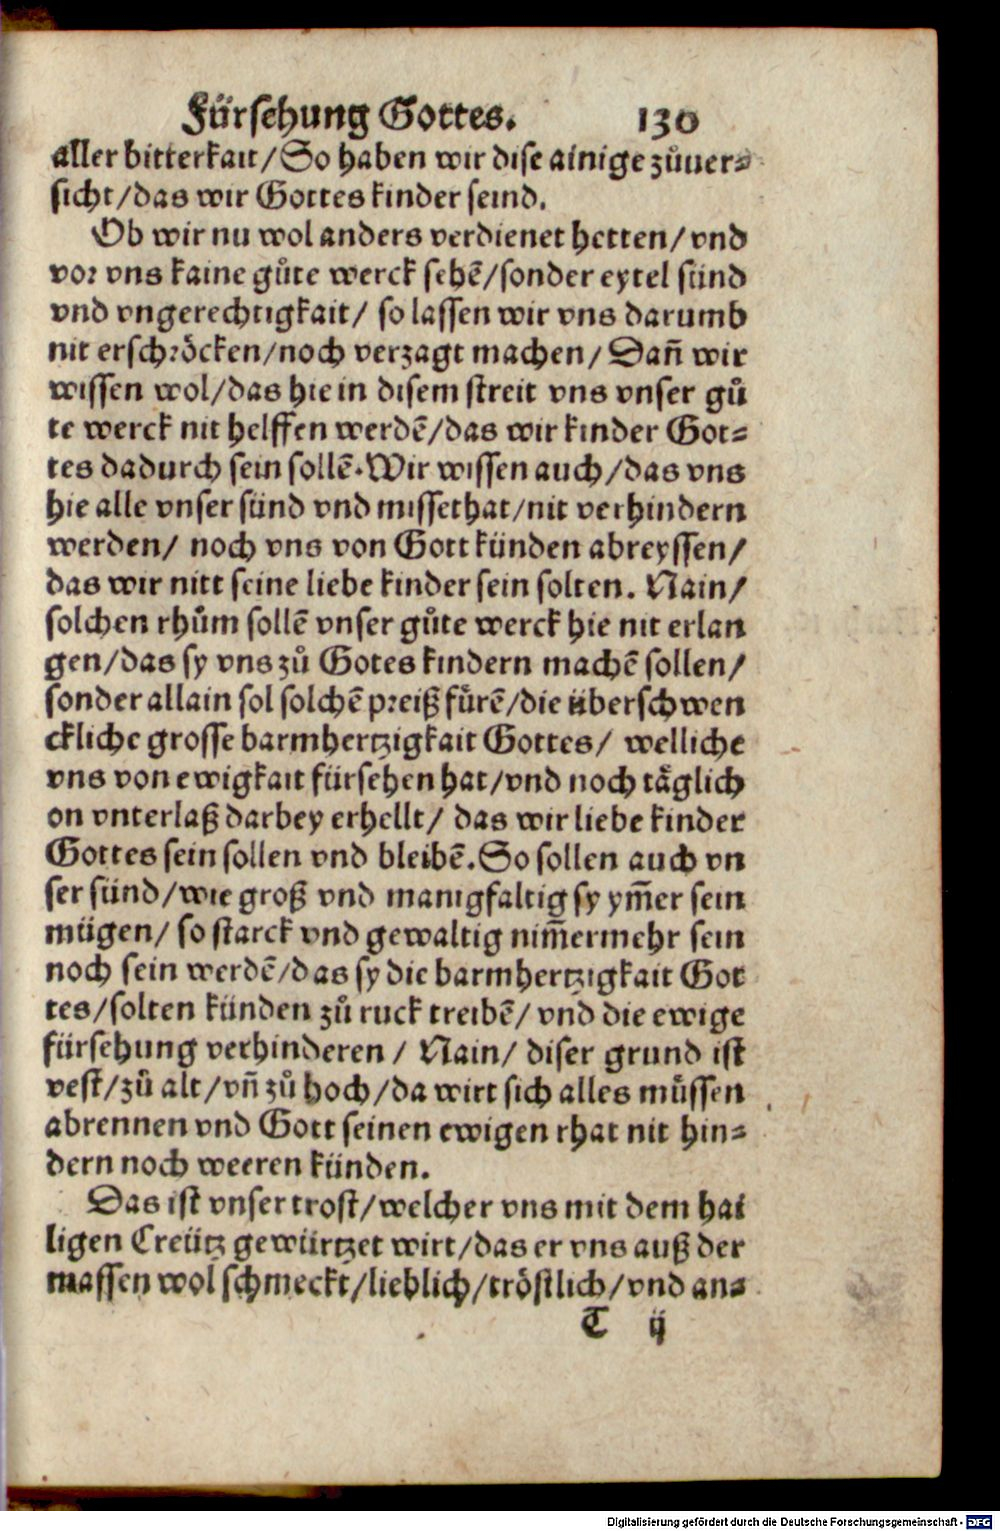 Fürsehung Gottes. 130
aller bitterkait/So haben wir dise ainige zůuer⸗
sicht/das wir Gottes kinder seind.
Ob wir nu wol anders verdienet hetten/vnd
vor vns kaine gůte werck sehē/sonder eytel sünd
vnd vngerechtigkait/ so lassen wir vns darumb
nit erschröcken/noch verzagt machen/ Dañ wir
wissen wol/das hie in disem streit vns vnser gů
te werck nit helffen werdē/das wir kinder Got⸗
tes dadurch sein sollē. Wir wissen auch/das vns
hie alle vnser sünd vnd missethat/nit verhindern
werden/ noch vns von Gott künden abreyssen/
das wir nitt seine liebe kinder sein solten. Nain/
solchen rhům sollē vnser gůte werck hie nit erlan
gen/das sy vns zů Gotes kindern machē sollen/
sonder allain sol solchē preiß fůrē/die überschwen
ckliche grosse barmhertzigkait Gottes/ welliche
vns von ewigkait fürsehen hat/vnd noch täglich
on vnterlaß darbey erhellt/ das wir liebe kinder
Gottes sein sollen vnd bleibē. So sollen auch vn
ser sünd/wie groß vnd manigfaltig sy ym̃er sein
mügen/ so starck vnd gewaltig nim̃ermehr sein
noch sein werdē/das sy die barmhertzigkait Got
tes/solten künden zů ruck treibē/ vnd die ewige
fürsehung verhinderen / Nain/ diser grund ist
vest/zů alt/vñ zů hoch/da wirt sich alles můssen
abrennen vnd Gott seinen ewigen rhat nit hin⸗
dern noch weeren künden.
Das ist vnser trost/welcher vns mit dem hai
ligen Creütz gewürtzet wirt/das er vns auß der
massen wol schmeckt/lieblich/tröstlich/vnd an⸗
T ij
Digitalisierung gefördert durch die Deutsche Forschungsgemeinschaft - DFG